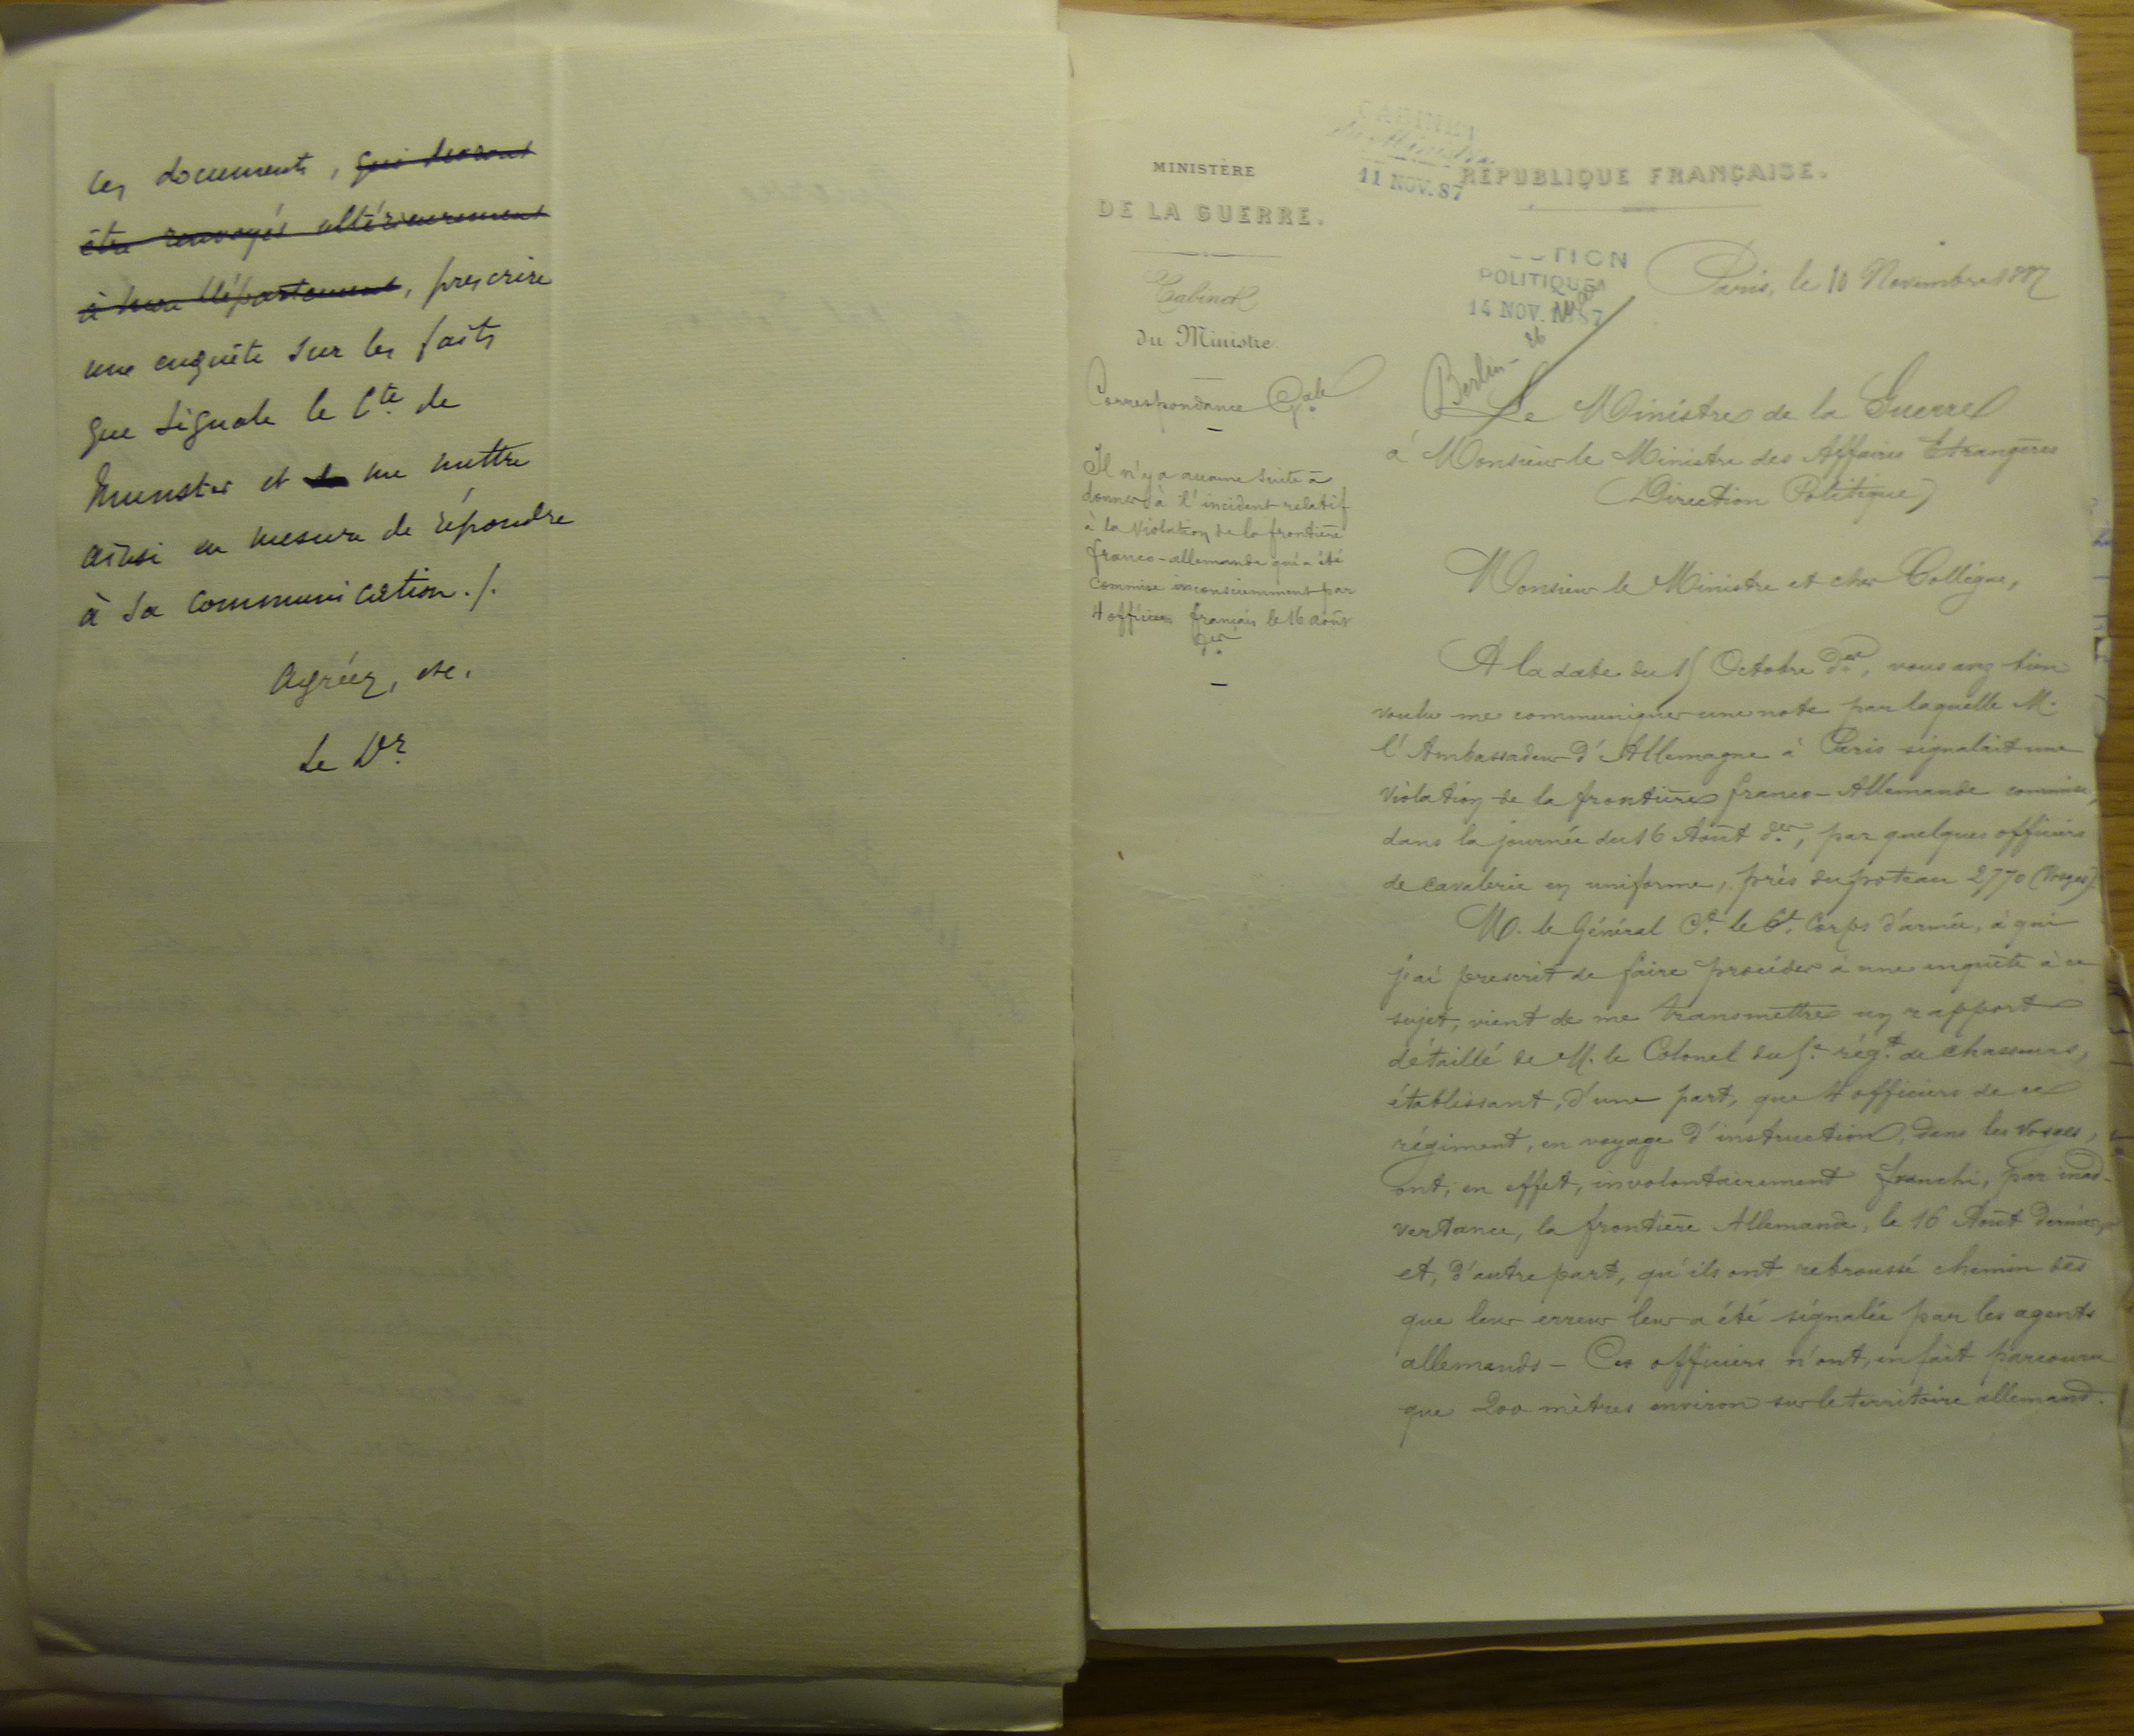 ces documents, qui devront
être renvoyés ultérieurement
à mon Département, prescrire
une enquête sur les faits
que signale le Cte de
Munster et me mettre
ainsi en mesure de répondre
à sa communication ./.
Agréez, etc.
Le Dr
MINISTÈRE
DE LA GUERRE.
Cabinet
du Ministre.
Correspondance Gale
Il n'y a aucune suite à
donner à l'incident relatif
à la violation de la frontière
franco-allemande qui a été
commise inconsciemment par
4 officiers français le 16 août
der
CABINET
du Ministre
11 NOV. 87
RÉPUBLIQUE FRANÇAISE.
POLITIQUE
14 NOV. 1887
Berlin
Paris, le 10 Novembre 1887
Le Ministre de la Guerre
à Monsieur le Ministre des Affaires Etrangères
(Direction Politique)
Monsieur le Ministre et cher Collègue,
A la date du 15 Octobre der, vous avez bien
voulu me communiquer une note par laquelle M.
l'Ambassadeur d'Allemagne à Paris signalait une
violation de la frontière franco-Allemande commise,
dans la journée du 16 Août der, par quelques officiers
de cavalerie en uniforme, près du poteau 2770 (Vosges).
M. le Général Ct le 6e Corps d'armée, à qui
j'ai prescrit de faire procéder à une enquête à ce
sujet, vient de me transmettre un rapport
détaillé de M. le Colonel du 5e régt de Chasseurs,
établissant, d'une part, que 4 officiers de ce
régiment, en voyage d'instruction, dans les Vosges,
ont, en effet, involontairement franchi, par inad-
vertance, la frontière Allemande, le 16 Août dernier,
et, d'autre part, qu'ils ont rebroussé chemin dès
que leur erreur leur a été signalée par les agents
allemands – Ces officiers n'ont, en fait parcouru
que 200 mètres environ sur le territoire allemand.